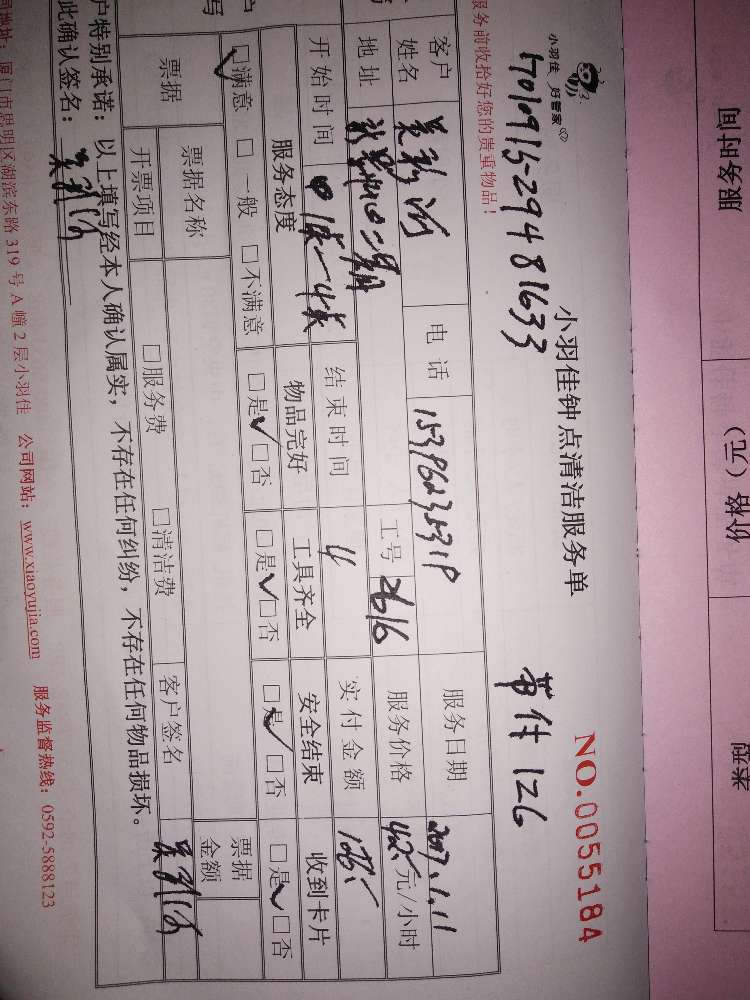 服务时间
价格（元）
类型
小羽佳 好管家
小羽佳钟点清洁服务单
NO.0055184
17010915-29481633
126
服务前收拾好您的贵重物品！
客户
姓名
电话
服务日期
2017.1.11
地址
工号
2616
服务价格
元/小时
开始时间
结束时间
4
实付金额
服务态度
物品完好
工具齐全
安全结束
收到卡片
☑满意 □一般 □不满意
□是 □否
□是 □否
□是 □否
□是 □否
票据
票据名称
票据
金额
开票项目
□服务费
□清洁费
客户签名
户特别承诺：以上填写经本人确认属实，不存在任何纠纷，不存在任何物品损坏。
此确认签名：
司地址：厦门市思明区湖滨东路 319 号 A 幢 2 层小羽佳 公司网站：www.xiaoyujia.com 服务监督热线：0592-5888123